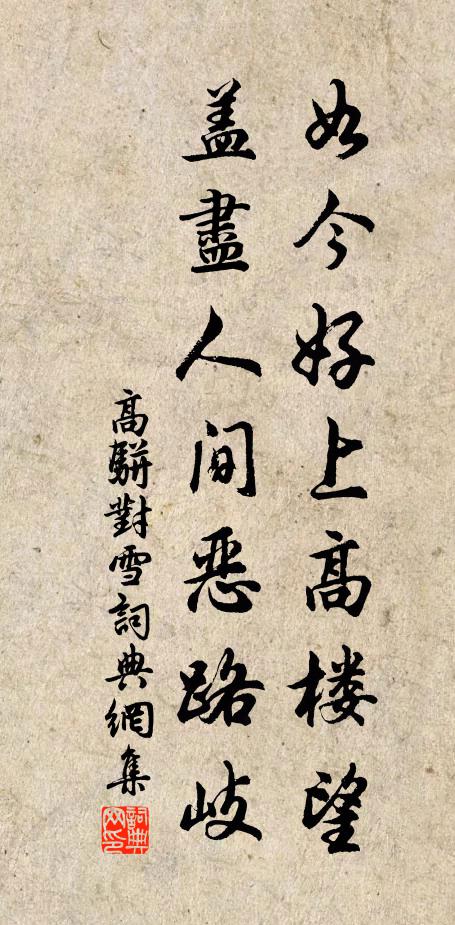 如今好上高楼望
盖盡人间恶路岐
高駢對雪詞典網集
詞典网印